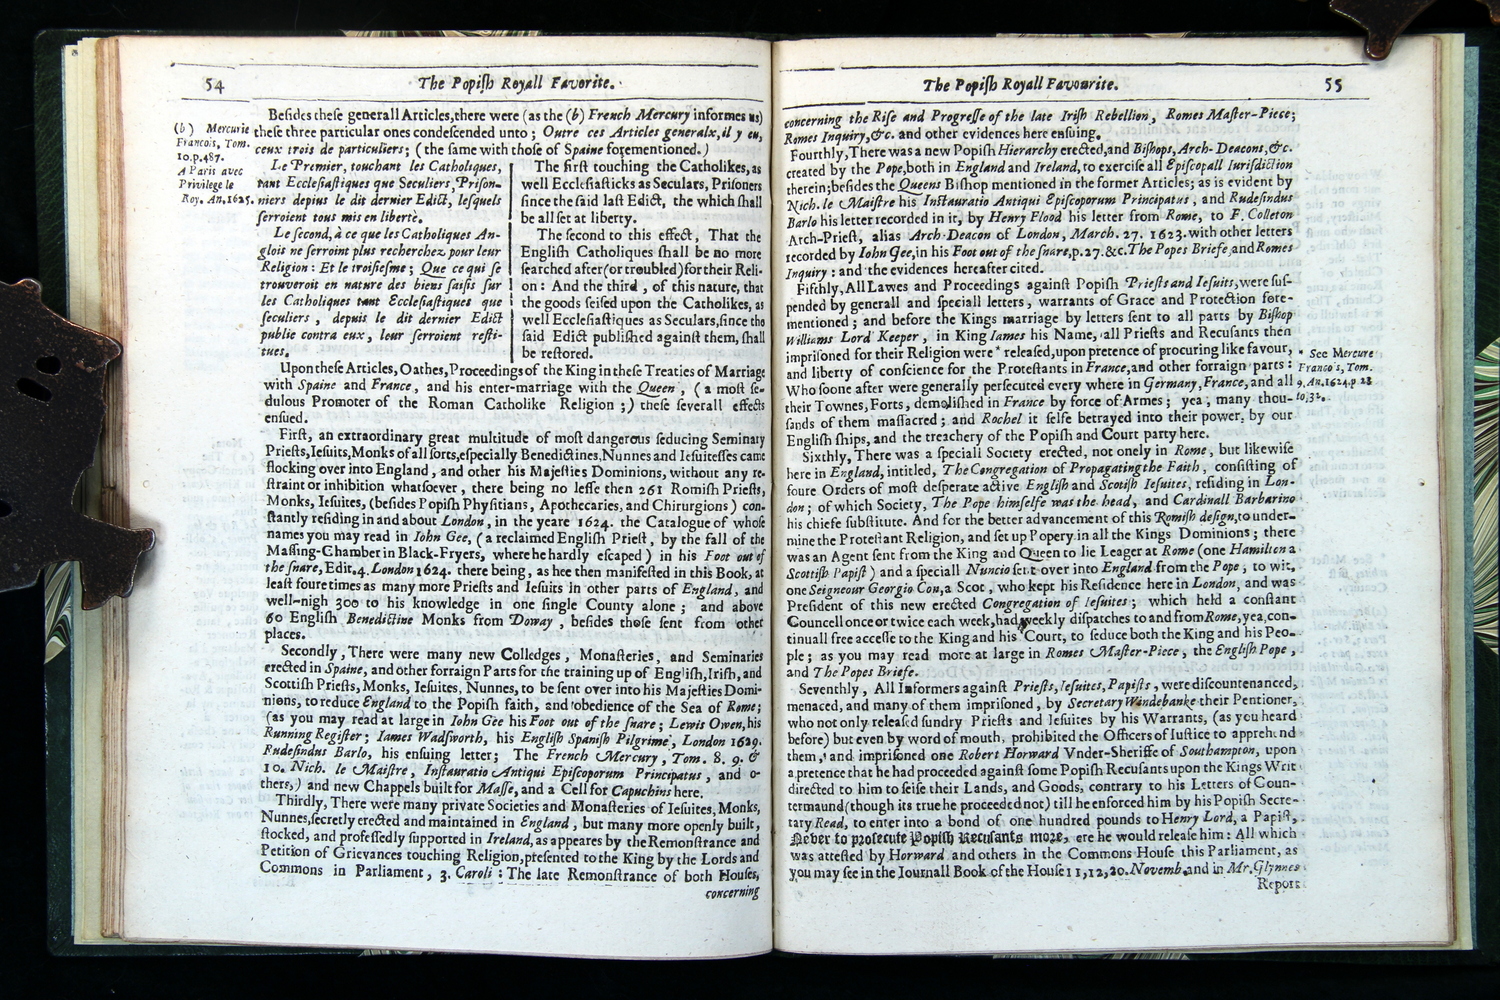 54
The Popiſh Royall Favorite.
Beſides theſe generall Articles, there were (as the (b) French Mercury informes us)
(b) Mercurie
Francois, Tom.
10.p.487.
A Paris avec
Privilege le
Roy. An, 1625.
theſe three particular ones condeſcended unto ; Outre ces Articles generalx, il y eu,
ceux trois de particuliers ; (the ſame with thoſe of Spaine forementioned.)
Le Premier, touchant les Catholiques,
tant Eccleſiaſtiques que Seculiers, Priſon-
niers depius le dit dernier Edict, leſquels
ſerroient tous mis en libertè.
Le ſecond, à ce que les Catholiques An-
glois ne ſerroint plus recherchez pour leur
Religion : Et le troiſieſme ; Que ce qui ſe
trouveroit en nature des biens ſaiſis ſur
les Catholiques tant Eccleſiaſtiques que
ſeculiers , depuis le dit dernier Edict
publie contra eux, leur ſerroient reſti-
tues.
The firſt touching the Catholikes, as
well Eccleſiaſticks as Seculars, Priſoners
ſince the ſaid laſt Edict, the which ſhall
be all ſet at liberty.
The ſecond to this effect, That the
Engliſh Catholiques ſhall be no more
ſearched after (or troubled) for their Reli-
on : And the third , of this nature, that
the goods ſeiſed upon the Catholikes, as
well Eccleſiaſtiques as Seculars, ſince the
ſaid Edict publiſhed againſt them, ſhall
be reſtored.
Upon theſe Articles, Oathes, Proceedings of the King in theſe Treaties of Marriage
with Spaine and France, and his enter-marriage with the Queen , (a moſt ſe-
dulous Promoter of the Roman Catholike Religion ;) theſe ſeverall effects
enſued.
Firſt, an extraordinary great multitude of moſt dangerous ſeducing Seminary
Prieſts, Ieſuits, Monks of all ſorts, eſpecially Benedictines, Nunnes and Ieſuiteſſes came
flocking over into England , and other his Majeſties Dominions, without any re-
ſtraint or inhibition whatſoever, there being no leſſe then 261 Romiſh Prieſts,
Monks, Ieſuites, (beſides Popiſh Phyſitians, Apothecaries, and Chirurgions) con-
ſtantly reſiding in and about London, in the yeare 1624. the Catalogue of whoſe
names you may read in Iohn Gee, (a reclaimed Engliſh Prieſt, by the fall of the
Maſſing-Chamber in Black-Fryers, where he hardly eſcaped) in his Foot out of
the ſnare, Edit. 4. London 1624. there being, as hee then manifeſted in this Book, at
leaſt foure times as many more Prieſts and Ieſuits in other parts of England, and
well-nigh 300 to his knowledge in one ſingle County alone ; and above
60 Engliſh Benedictine Monks from Doway , beſides thoſe ſent from other
places.
Secondly, There were many new Colledges , Monaſteries, and Seminaries
erected in Spaine, and other forraign Parts for the training up of Engliſh, Iriſh, and
Scottiſh Prieſts, Monks, Ieſuites, Nunnes, to be ſent over into his Majeſties Domi-
nions, to reduce England to the Popiſh faith, and obedience of the Sea of Rome;
(as you may read at large in Iohn Gee his Foot out of the ſnare ; Lewis Owen, his
Running Regiſter; Iames Wadſworth, his Engliſh Spaniſh Pilgrime, London 1629.
Rudeſindus Barlo, his enſuing letter; The French Mercury, Tom. 8. 9. &
10. Nich. le Maiſtre, Inſtauratio Antiqui Epiſcoporum Principatus , and o-
thers,) and new Chappels built for Maſſe, and a Cell for Capuchins here.
Thirdly, There were many private Societies and Monaſteries of Ieſuites, Monks,
Nunnes, ſecretly erected and maintained in England , but many more openly built,
ſtocked, and profeſſedly ſupported in Ireland, as appeares by the Remonſtrance and
Petition of Grievances touching Religion, preſented to the King by the Lords and
Commons in Parliament, 3. Caroli : The late Remonſtrance of both Houſes,
concerning
The Popiſh Royall Favourite.
55
concerning the Riſe and Progreſſe of the late Iriſh Rebellion, Romes Maſter-Piece;
Romes Inquiry, &c. and other evidences here enſuing.
Fourthly, There was a new Popiſh Hierarchy erected, and Biſhops, Arch-Deacons, &c.
created by the Pope, both in England and Ireland, to exerciſe all Epiſcopall Iurisdiction
therein; beſides the Queens Biſhop mentioned in the former Articles; as is evident by
Nich. le Maiſtre his Inſtauratio Antiqui Epiſcoporum Principatus , and Rudeſindus
Barlo his letter recorded in it, by Henry Flood his letter from Rome, to F. Colleton
Arch-Prieſt, alias Arch-Deacon of London, March. 27. 1623. with other letters
recorded by Iohn Gee, in his Foot out of the ſnare, p. 27. &c. The Popes Briefe, and Romes
Inquiry : and the evidences hereafter cited.
Fifthly, All Lawes and Proceedings againſt Popiſh Prieſts and Ieſuits, were ſuſ-
pended by generall and ſpeciall letters , warrants of Grace and Protection fore-
mentioned ; and before the Kings marriage by letters ſent to all parts by Biſhop
Williams Lord Keeper , in King Iames his Name, all Prieſts and Recuſants then
impriſoned for their Religion were * releaſed, upon pretence of procuring like favour,
and liberty of conſcience for the Proteſtants in France, and other forraign parts :
Who ſoone after were generally perſecuted every where in Germany, France, and all
their Townes, Forts, demoliſhed in France by force of Armes ; yea , many thou-
ſands of them maſſacred ; and Rochel it ſelfe betrayed into their power, by our
Engliſh ſhips, and the treachery of the Popiſh and Court party here.
* See Mercure
Francois, Tom.
9. An. 1624. p. 28
to, 32.
Sixthly, There was a ſpeciall Society erected, not onely in Rome, but likewiſe
here in England, intitled, The Congregation of Propagating the Faith , conſiſting of
foure Orders of moſt deſperate active Engliſh and Scotiſh Ieſuites, reſiding in Lon-
don ; of which Society, The Pope himſelfe was the head, and Cardinall Barbarino
his chiefe ſubſtitute. And for the better advancement of this Romiſh deſign, to under-
mine the Proteſtant Religion, and ſet up Popery in all the Kings Dominions ; there
was an Agent ſent from the King and Queen to lie Leager at Rome (one Hamilton a
Scottiſh Papiſt) and a ſpeciall Nuncio ſent over into England from the Pope , to wit,
one Seigneour Georgio Con, a Scot , who kept his Reſidence here in London, and was
Preſident of this new erected Congregation of Ieſuites ; which held a conſtant
Councell once or twice each week, had weekly diſpatches to and from Rome, yea, con-
tinuall free acceſſe to the King and his Court, to ſeduce both the King and his Peo-
ple ; as you may read more at large in Romes Maſter-Piece , the Engliſh Pope ,
and The Popes Briefe.
Seventhly , All Informers againſt Prieſts, Ieſuites, Papiſts , were diſcountenanced,
menaced, and many of them impriſoned , by Secretary Windebanke their Pentioner,
who not only releaſed ſundry Prieſts and Ieſuites by his Warrants, (as you heard
before) but even by word of mouth, prohibited the Officers of Iuſtice to apprehend
them, and impriſoned one Robert Horward Vnder-Sheriffe of Southampton, upon
a pretence that he had proceeded againſt ſome Popiſh Recuſants upon the Kings Writ
directed to him to ſeiſe their Lands, and Goods, contrary to his Letters of Coun-
termaund (though its true he proceeded not) till he enforced him by his Popiſh Secre-
tary Read, to enter into a bond of one hundred pounds to Henry Lord, a Papiſt,
Never to proſecute Popiſh Recuſants more, ere he would releaſe him : All which
was atteſted by Horward and others in the Commons Houſe this Parliament, as
you may ſee in the Iournall Book of the Houſe 11, 12, 20. Novemb. and in Mr. Glynnes
Report